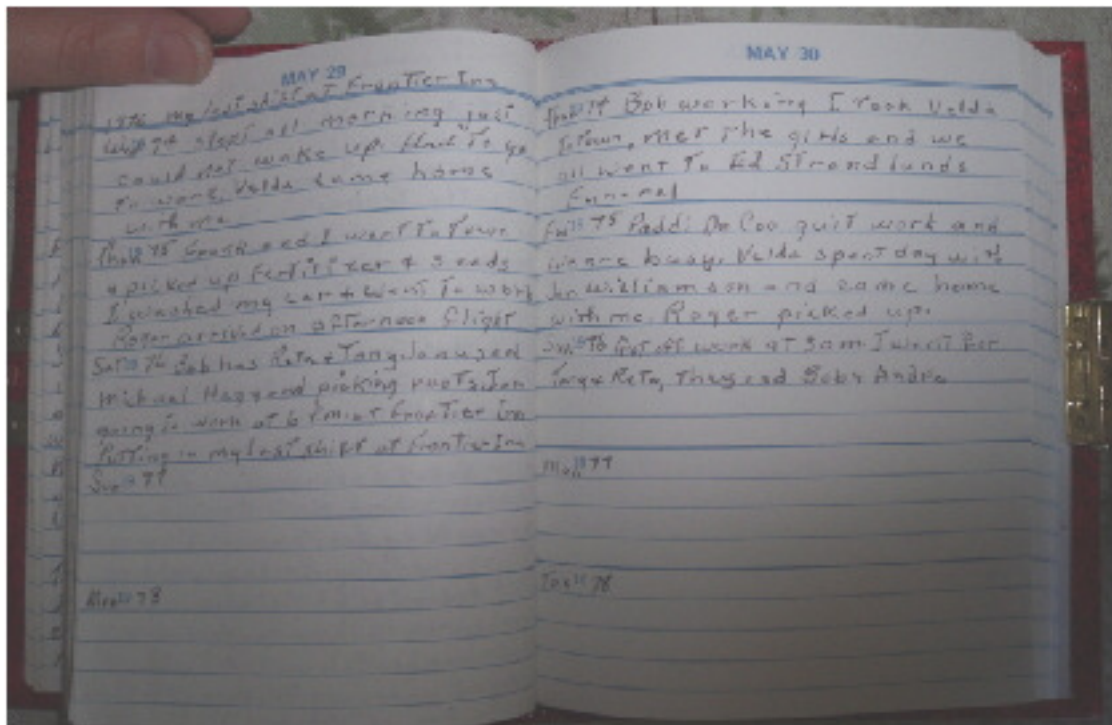 MAY 29
1976 my last shift at Frontier Inn
Wed 1974 slept all morning just
could not wake up. to go
to work. Velda came home
with me
Thu 1975 and I went to town
& picked up fertilizer & seeds
I washed my car & went to work
Roger arrived on afternoon flight
Sat 1976 Bob has Reta &
Michael picking
going to work at 6 Frontier Inn
Putting in my last shift at Frontier Inn
Sun 1977
Mon 1978
MAY 30
Thu 1974 Bob working I took Velda
to town, met the girls and we
all went to Ed Stromdlunds
Funeral
Fri 1975 quit work and
busy. Velda spent day with
Williamson and came home
with me. Roger picked up.
Sun 1976 Got off work at 3am I went for
& Reta, They and Bob &
Mon 1977
Tue 1978